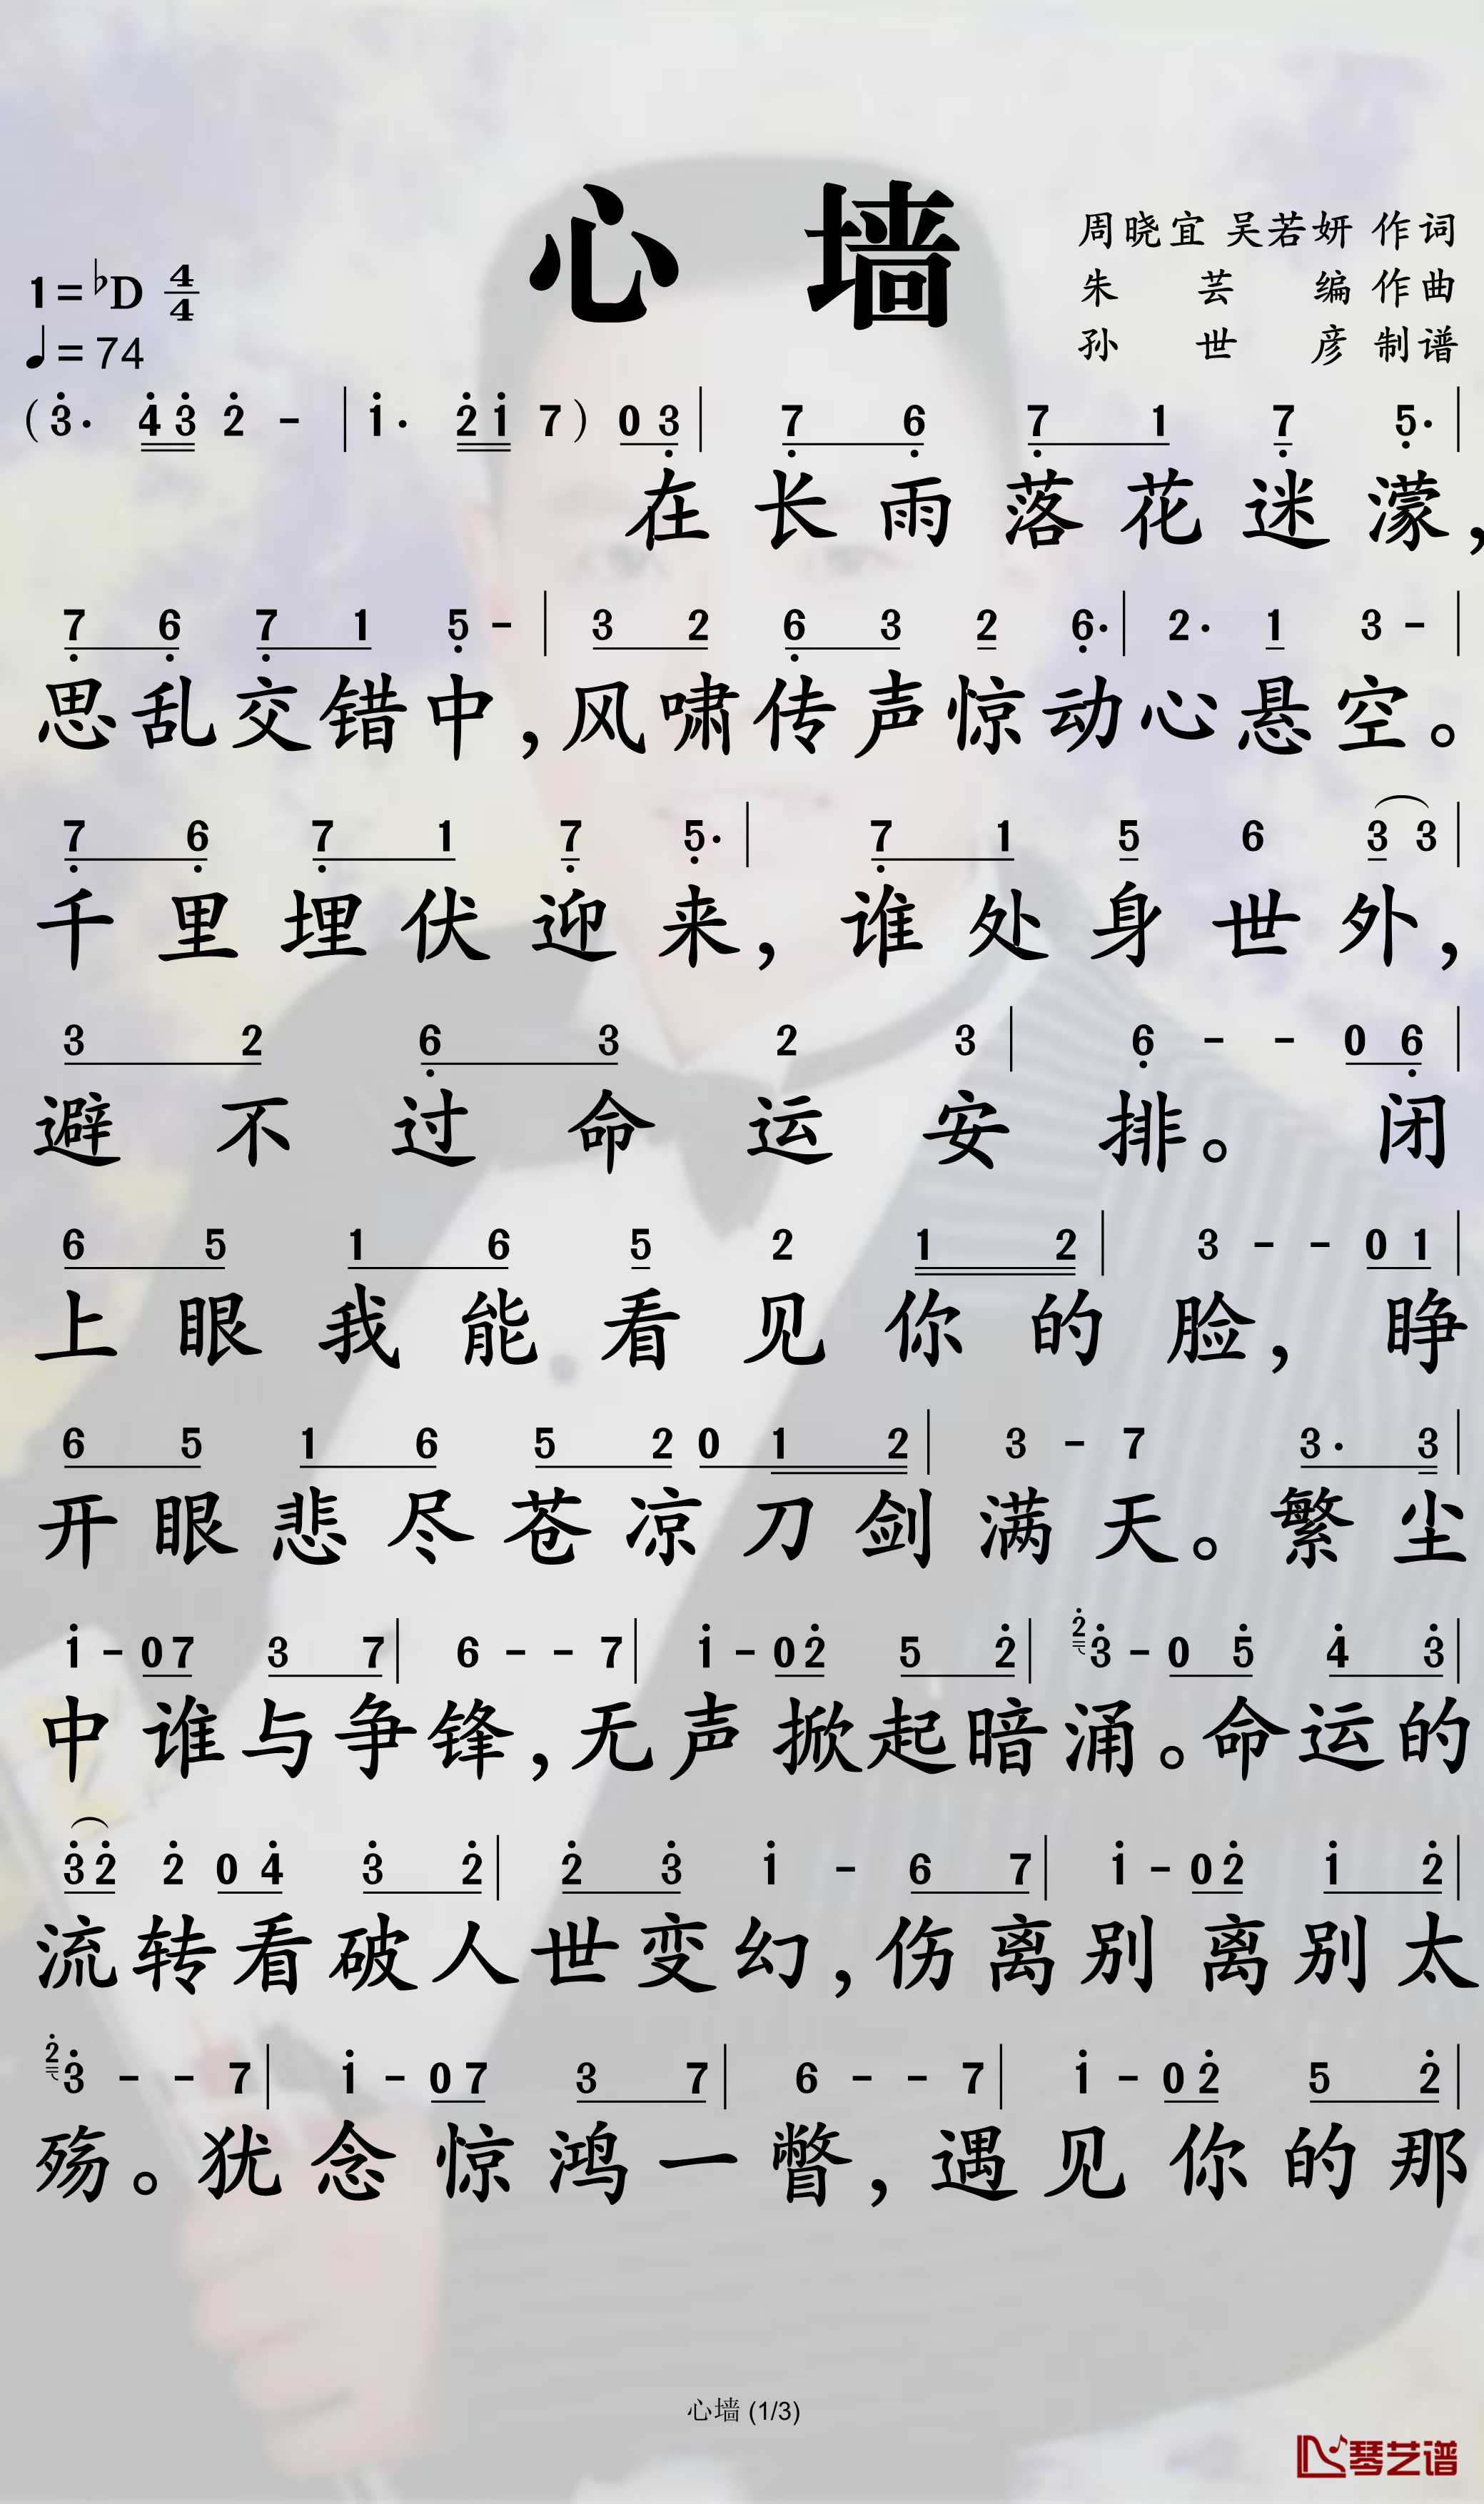 心 墙
周晓宜 吴若妍 作词
朱芸编 作曲
孙世彦 制谱
1=♭D 4/4
♩=74
(3̇. 4̇3̇ 2̇ - | 1̇. 2̇1̇ 7) 03̣ | 7̣ 6̣ 7̣ 1 7̣ 5̣. |
在长雨落花迷濛,
7̣ 6̣ 7̣ 1 5̣ - | 3 2 6̣ 3 2 6̣. | 2. 1 3 - |
思乱交错中,风啸传声惊动心悬空。
7̣ 6̣ 7̣ 1 7̣ 5̣. | 7̣ 1 5 6 3 3 |
千里埋伏迎来,谁处身世外,
3 2 6̣ 3 2 3 | 6̣ - - 0 6̣ |
避不过命运安排。闭
6 5 1 6 5 2 1 2 | 3 - - 0 1 |
上眼我能看见你的脸,睁
6 5 1 6 5 2 0 1 2 | 3 - 7 3. 3 |
开眼悲尽苍凉刀剑满天。繁尘
1̇ - 0 7 3 7 | 6 - - 7 | 1̇ - 0 2̇ 5 2̇ | 2̇ 3̇ - 0 5̇ 4̇ 3̇ |
中谁与争锋,无声掀起暗涌。命运的
3̇ 2̇ 2̇ 0 4̇ 3̇ 2̇ | 2̇ 3̇ 1̇ - 6 7 | 1̇ - 0 2̇ 1̇ 2̇ |
流转看破人世变幻,伤离别离别太
2̇ 3̇ - - 7 | 1̇ - 0 7 3 7 | 6 - - 7 | 1̇ - 0 2̇ 5 2̇ |
殇。犹念惊鸿一瞥,遇见你的那
心墙 (1/3)
琴艺谱